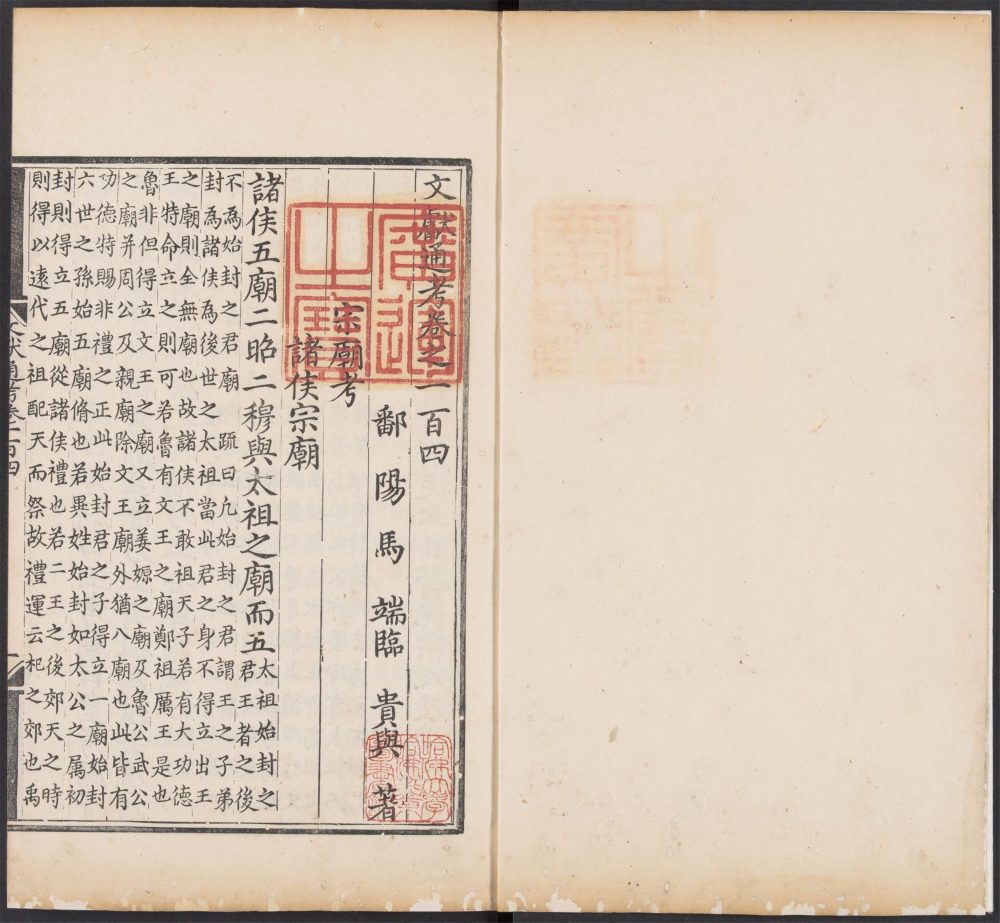 文獻通考卷之一百四
鄱陽馬端臨貴與著
宗廟考
諸侯宗廟
諸侯五廟二昭二穆與太祖之廟而五
太祖始封之
君王者之後
不為始封之君廟疏曰凢始封之君謂王之子弟
封為諸侯為後世之太祖當此君之身不得立出王
之廟則全無廟也故諸侯不敢祖天子若有大功德
王特命立之則可若魯有文王之廟鄭祖厲王是也
魯非但得立文王之廟又立姜嫄之廟及魯公武公
之廟并周公及親廟除文王廟外猶八廟也此皆有
功德特賜非禮之正此始封君之子得立一廟始封
六世之孫始五廟脩也若異姓始封如太公之属初
封則得立五廟從諸侯禮也若二王之後郊天之時
則得以遠代之祖配天而祭故禮運云杞之郊也禹
通考卷一百四
廣運之寶